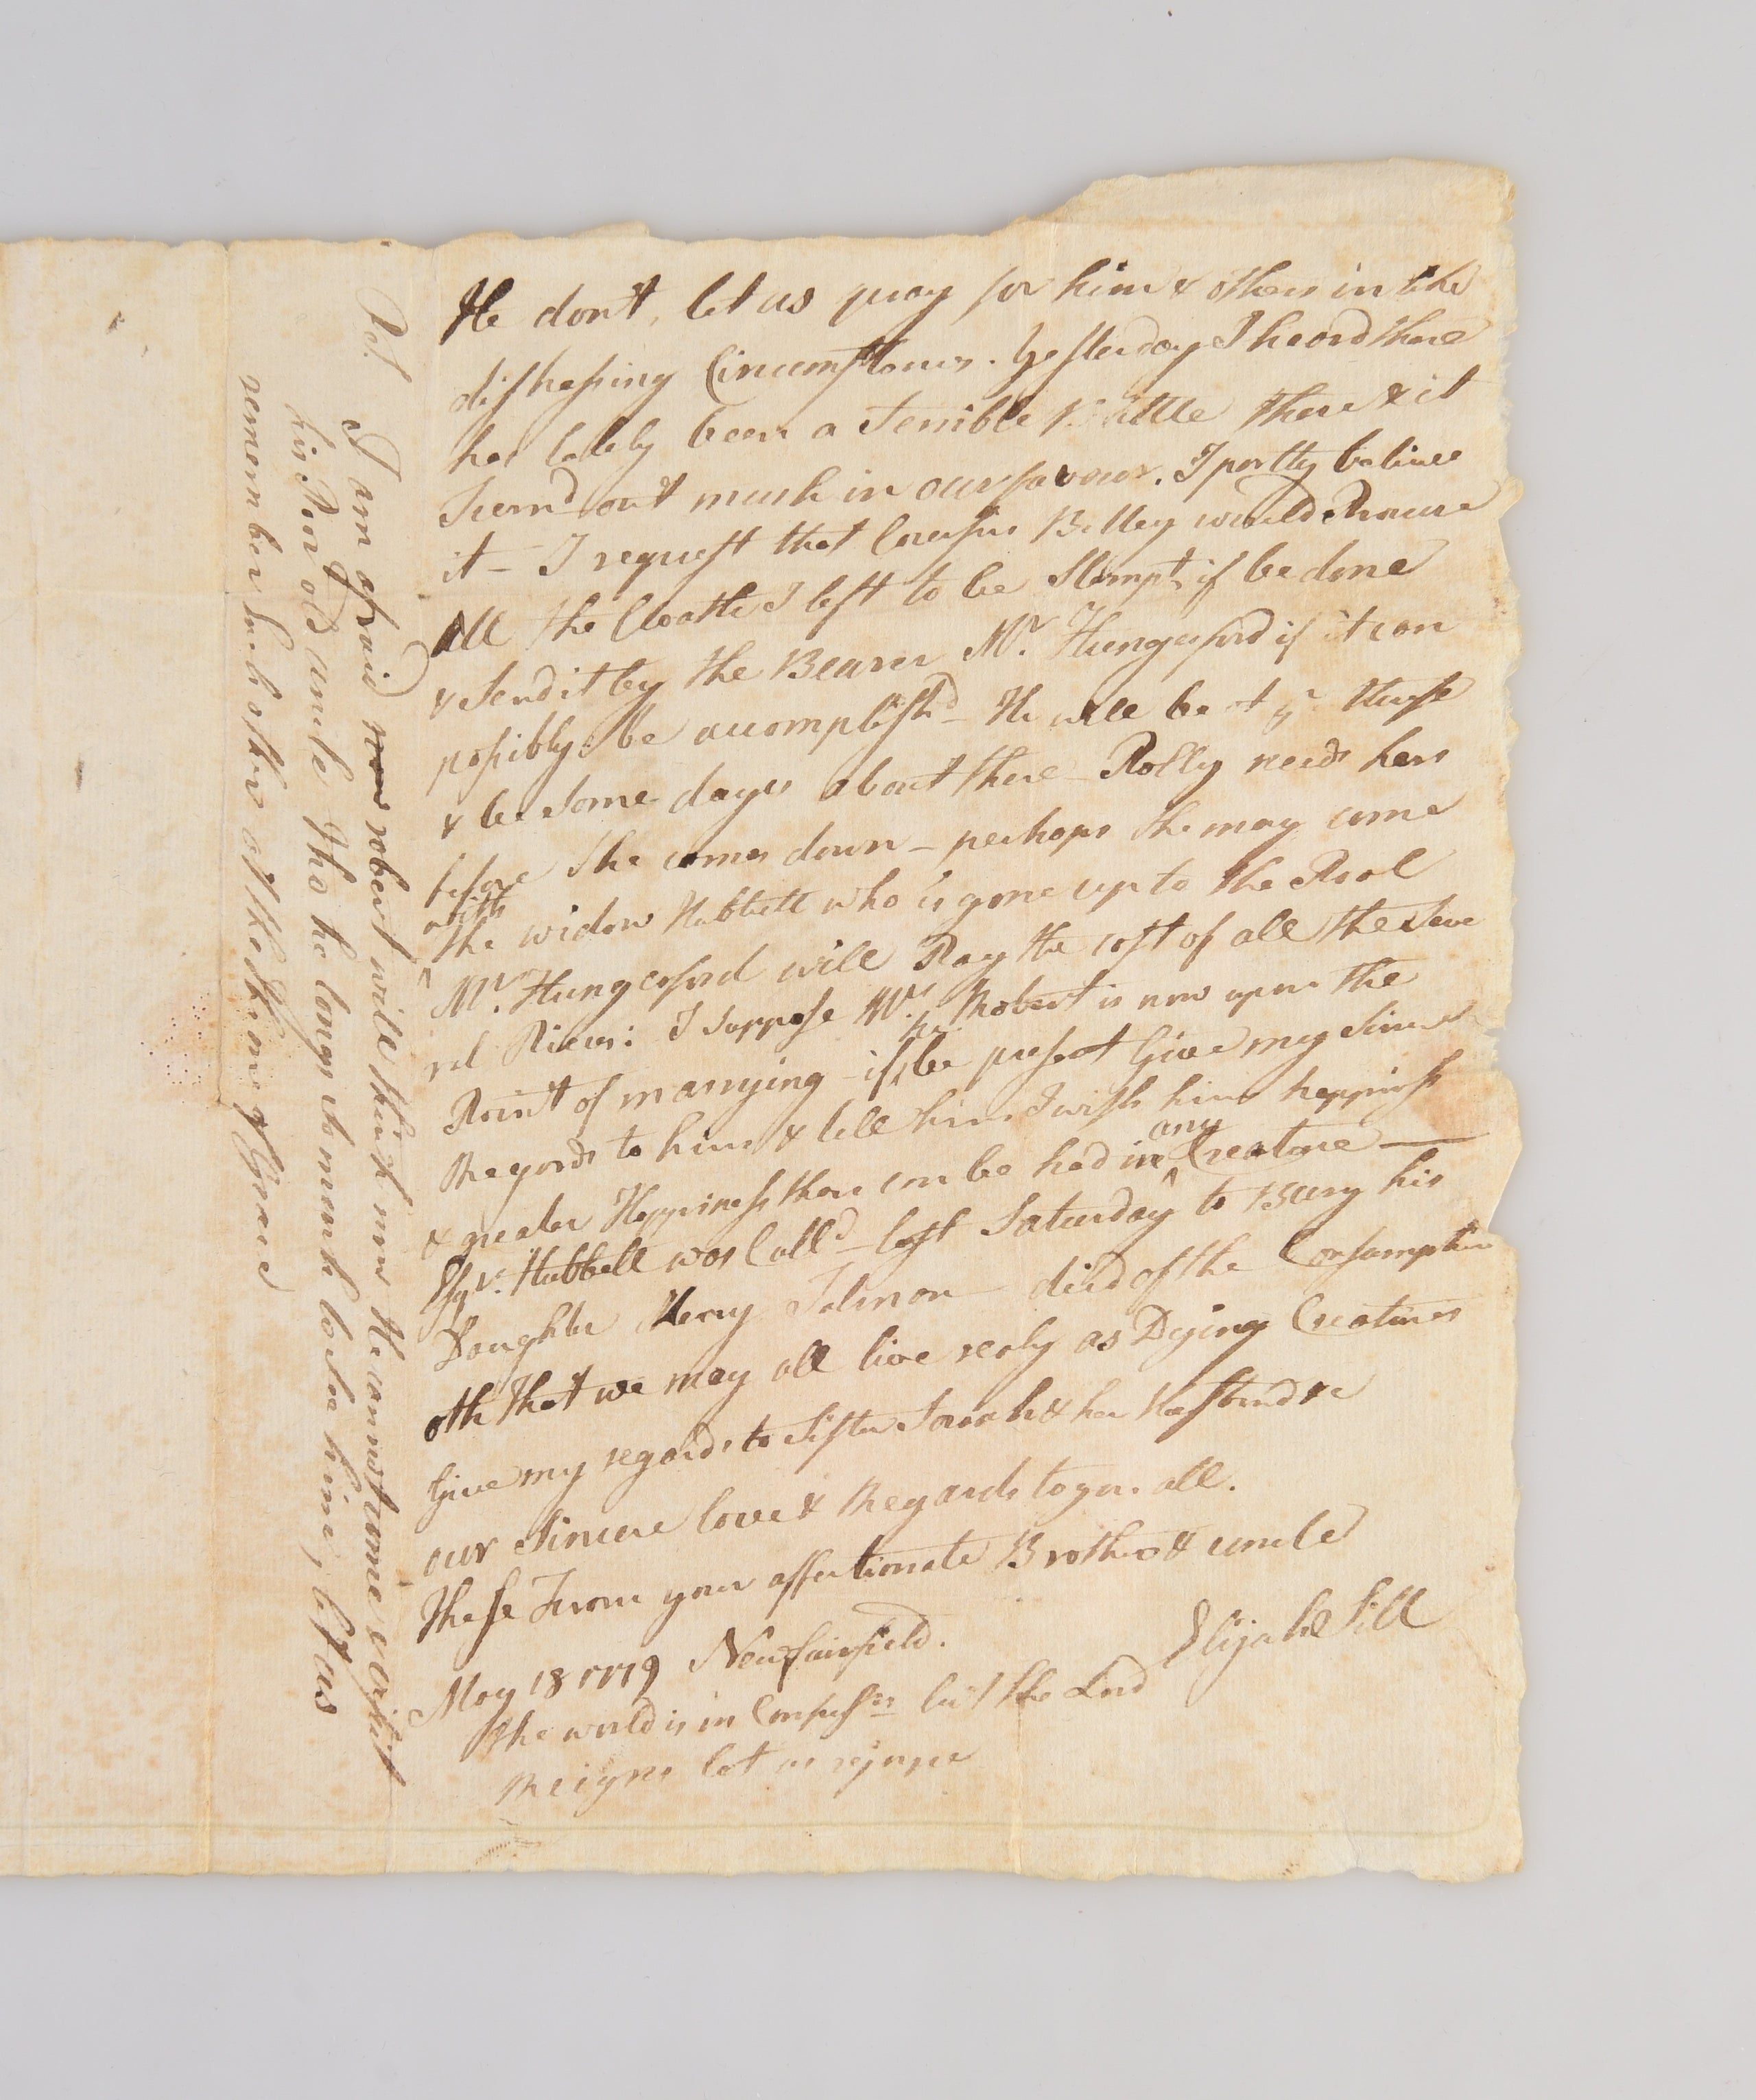 He don't, let us pray for him & others in the
distressing Circumstances. Yesterday I heard there
has lately been a Terrible Battle there & it
Turnd out much in our favour. I partly believe
it – I request that Cousin Billey would Procure
All the Cloath I left to be Stampt, if be done
& Send it by the Bearer Mr. Hungerford if it can
possibly be accomplishd – He will be at yr House
& be Some days about there – Polly needs hers
before She comes down – perhaps She may come
with
the widow Hubbell who is gone up to the Pool
Mr. Hungerford will Pay the cost of all the Seve
ral Pieces: I Suppose Mr. Robert is now upon the
Point of marrying – if he be present Give my Sincere
Regards to him & tell him I wish him happiness
& greater Happiness than can be had in any Creature —
Esqr. Hubbell was Calld – last Saturday to Bury his
Daughter Mercy Talmon – died of the Consumption
oth that we may all live realy as Dying Creatures
Give my regards to Sister Sarah & her Husband &c
our Sincere love & Regards to you all.
These From your affectionate Brother & uncle
Elijah Sill
May 18 1779 Newfairfield.
The world is in Confusn but the Lord
Reigns let us rejoyce
Ps.
I am afraid now robert will think now He cannot come visit
his Poor old uncle Tho he longs so much to See him, let us
remember Each other at the Throne of Grace